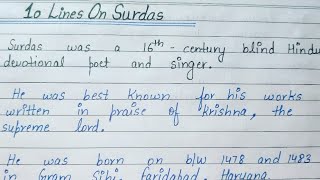 10 Lines On Surdas
Surdas was a 16th - century blind Hindu
devotional poet and singer.
He was best known for his works
written in praise of Krishna, the
supreme lord.
He was born on b/w 1478 and 1483
in Gram Sihi, Faridabad, Haryana.